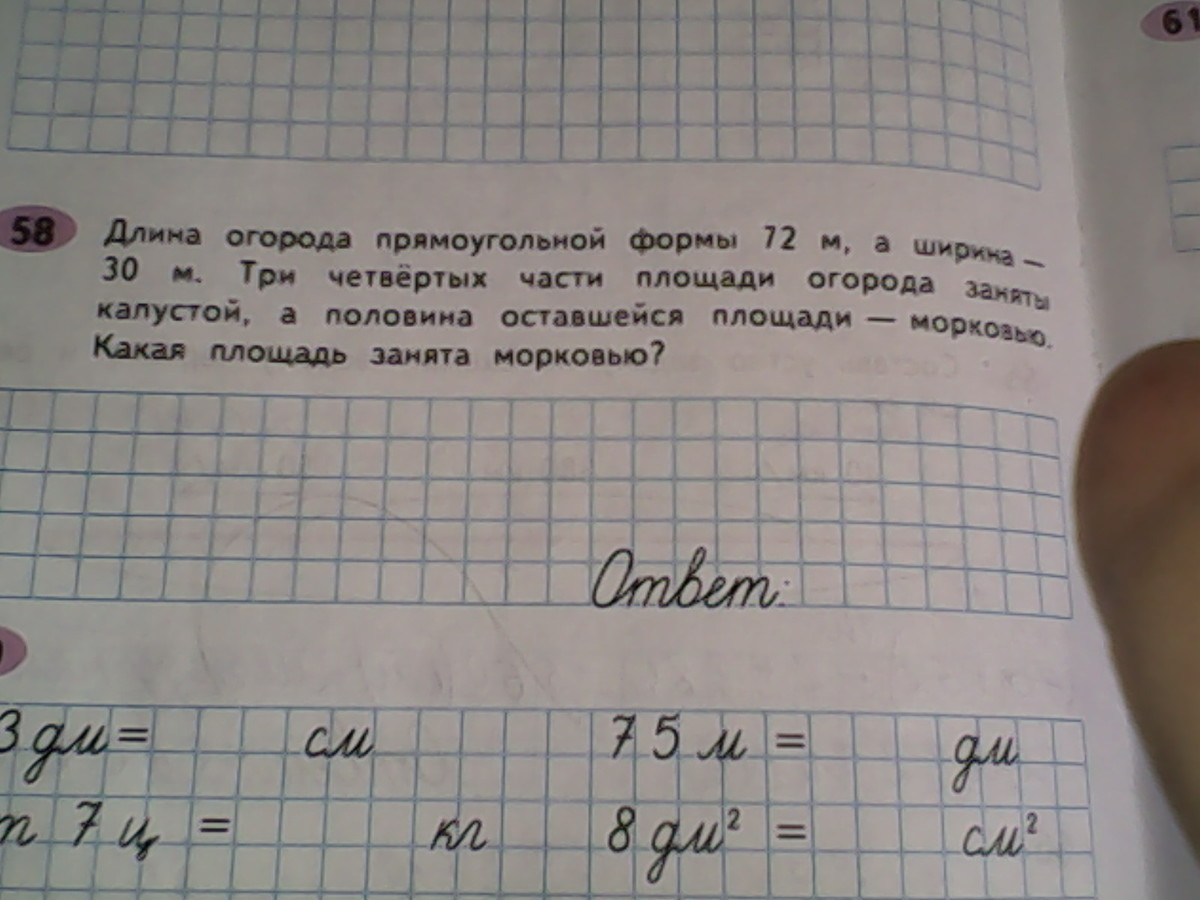 61
58 Длина огорода прямоугольной формы 72 м, а ширина —
30 м. Три четвёртых части площади огорода заняты
капустой, а половина оставшейся площади — морковью.
Какая площадь занята морковью?
Ответ:
3 дм = см 75 м = дм
т 7 ц = кг 8 дм² = см²